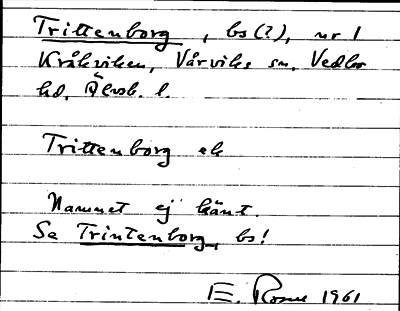 Trittenborg, bs(?), nr 1
Kråkviken, Vårviks sn, Vedbo
hd, Älvsb. l.
Trittenborg ek
Namnet ej känt.
Se Trintenborg, bs!
E. Rosme 1961